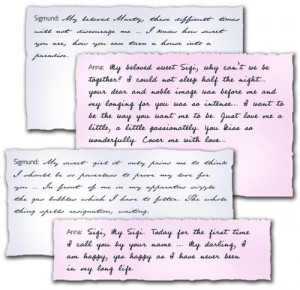 Sigmund: My beloved Marty, these difficult times
will not discourage me ... I know how sweet
you are, how you can turn a house into a
paradise.
Anna: My beloved sweet Sigi, why can't we be
together? I could not sleep half the night..
your dear and noble image was before me and
my longing for you was so intense... I want to
be the way you want me to be. Just love me a
little, a little passionately. You kiss so
wonderfully. Cover me with love...
Sigmund: My sweet girl it only pains me to think
I should be so powerless to prove my love for
you ... In front of me in my apparatus sizzle
the gas bubbles which I have to filter. The whole
thing spells resignation, waiting.
Anna: Sigi, My Sigi. Today for the first time
I call you by your name ... My darling, I
am happy, yes happy as I have never been
in my long life.